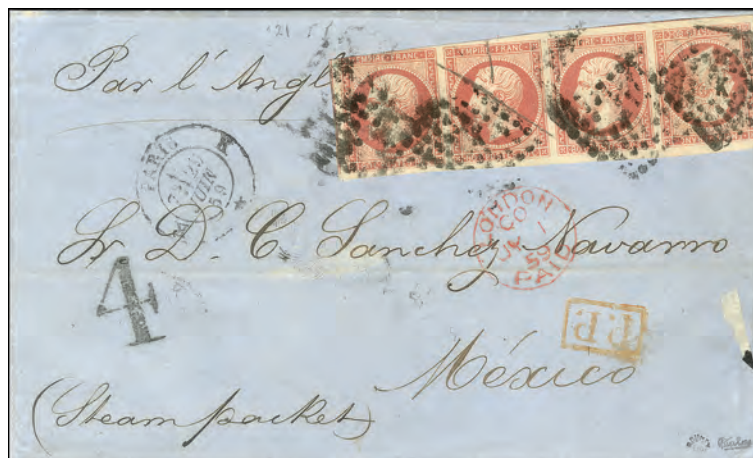 Par l'Angl
EMPIRE FRANC
EMPIRE FRANC
EMPIRE FRANC
PARIS K
JUIN
59
LONDON
CO
JY 1
59
PAID
Sr D. C. Sanchez Navarro
4
P.P.
México
(Steam packet)